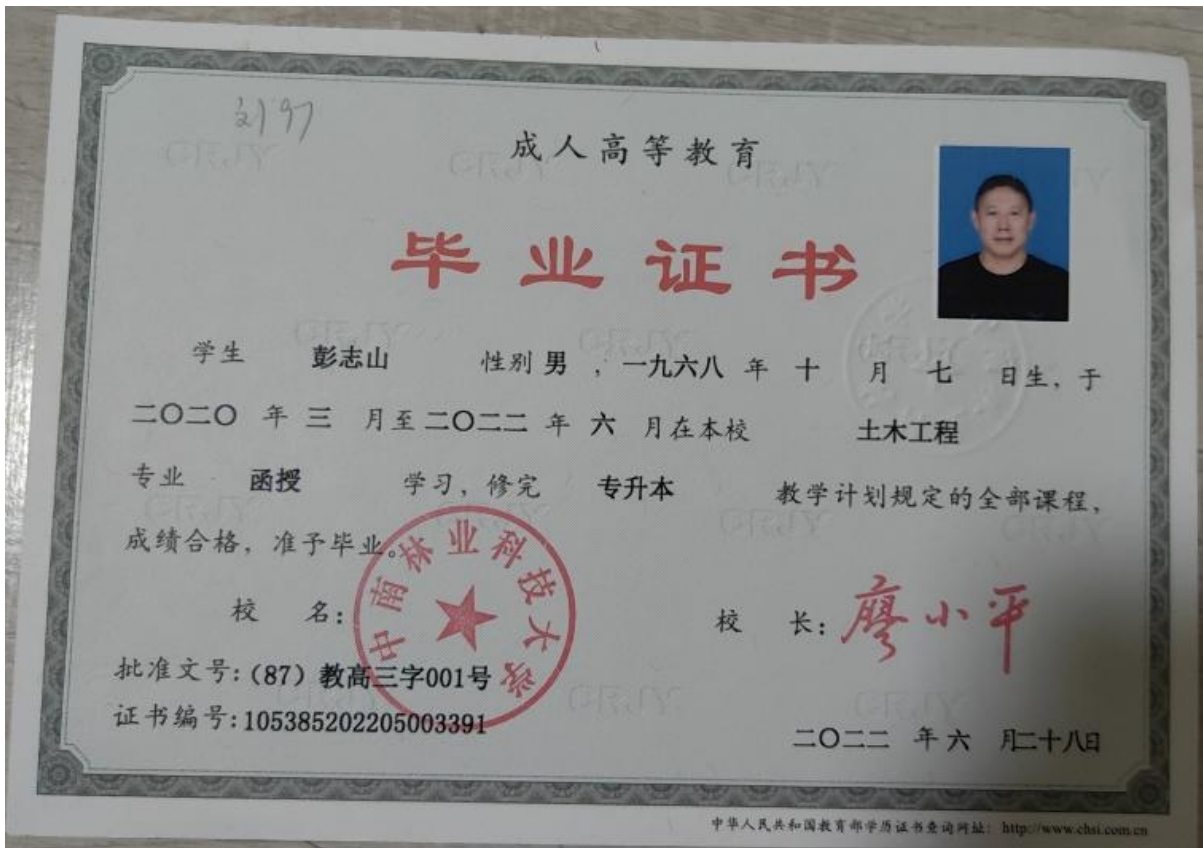 成人高等教育
毕业证书
学生 彭志山 性别 男 ，一九六八 年 十 月 七 日生，于
二〇二〇 年 三 月至 二〇二二 年 六 月在本校 土木工程
专业 函授 学习，修完 专升本 教学计划规定的全部课程，
成绩合格，准予毕业。
中南林业科技大学
校 名： 校 长：廖小平
批准文号：(87) 教高三字001号
证书编号：105385202205003391
二〇二二 年 六 月二十八日
中华人民共和国教育部学历证书查询网址：http://www.chsi.com.cn